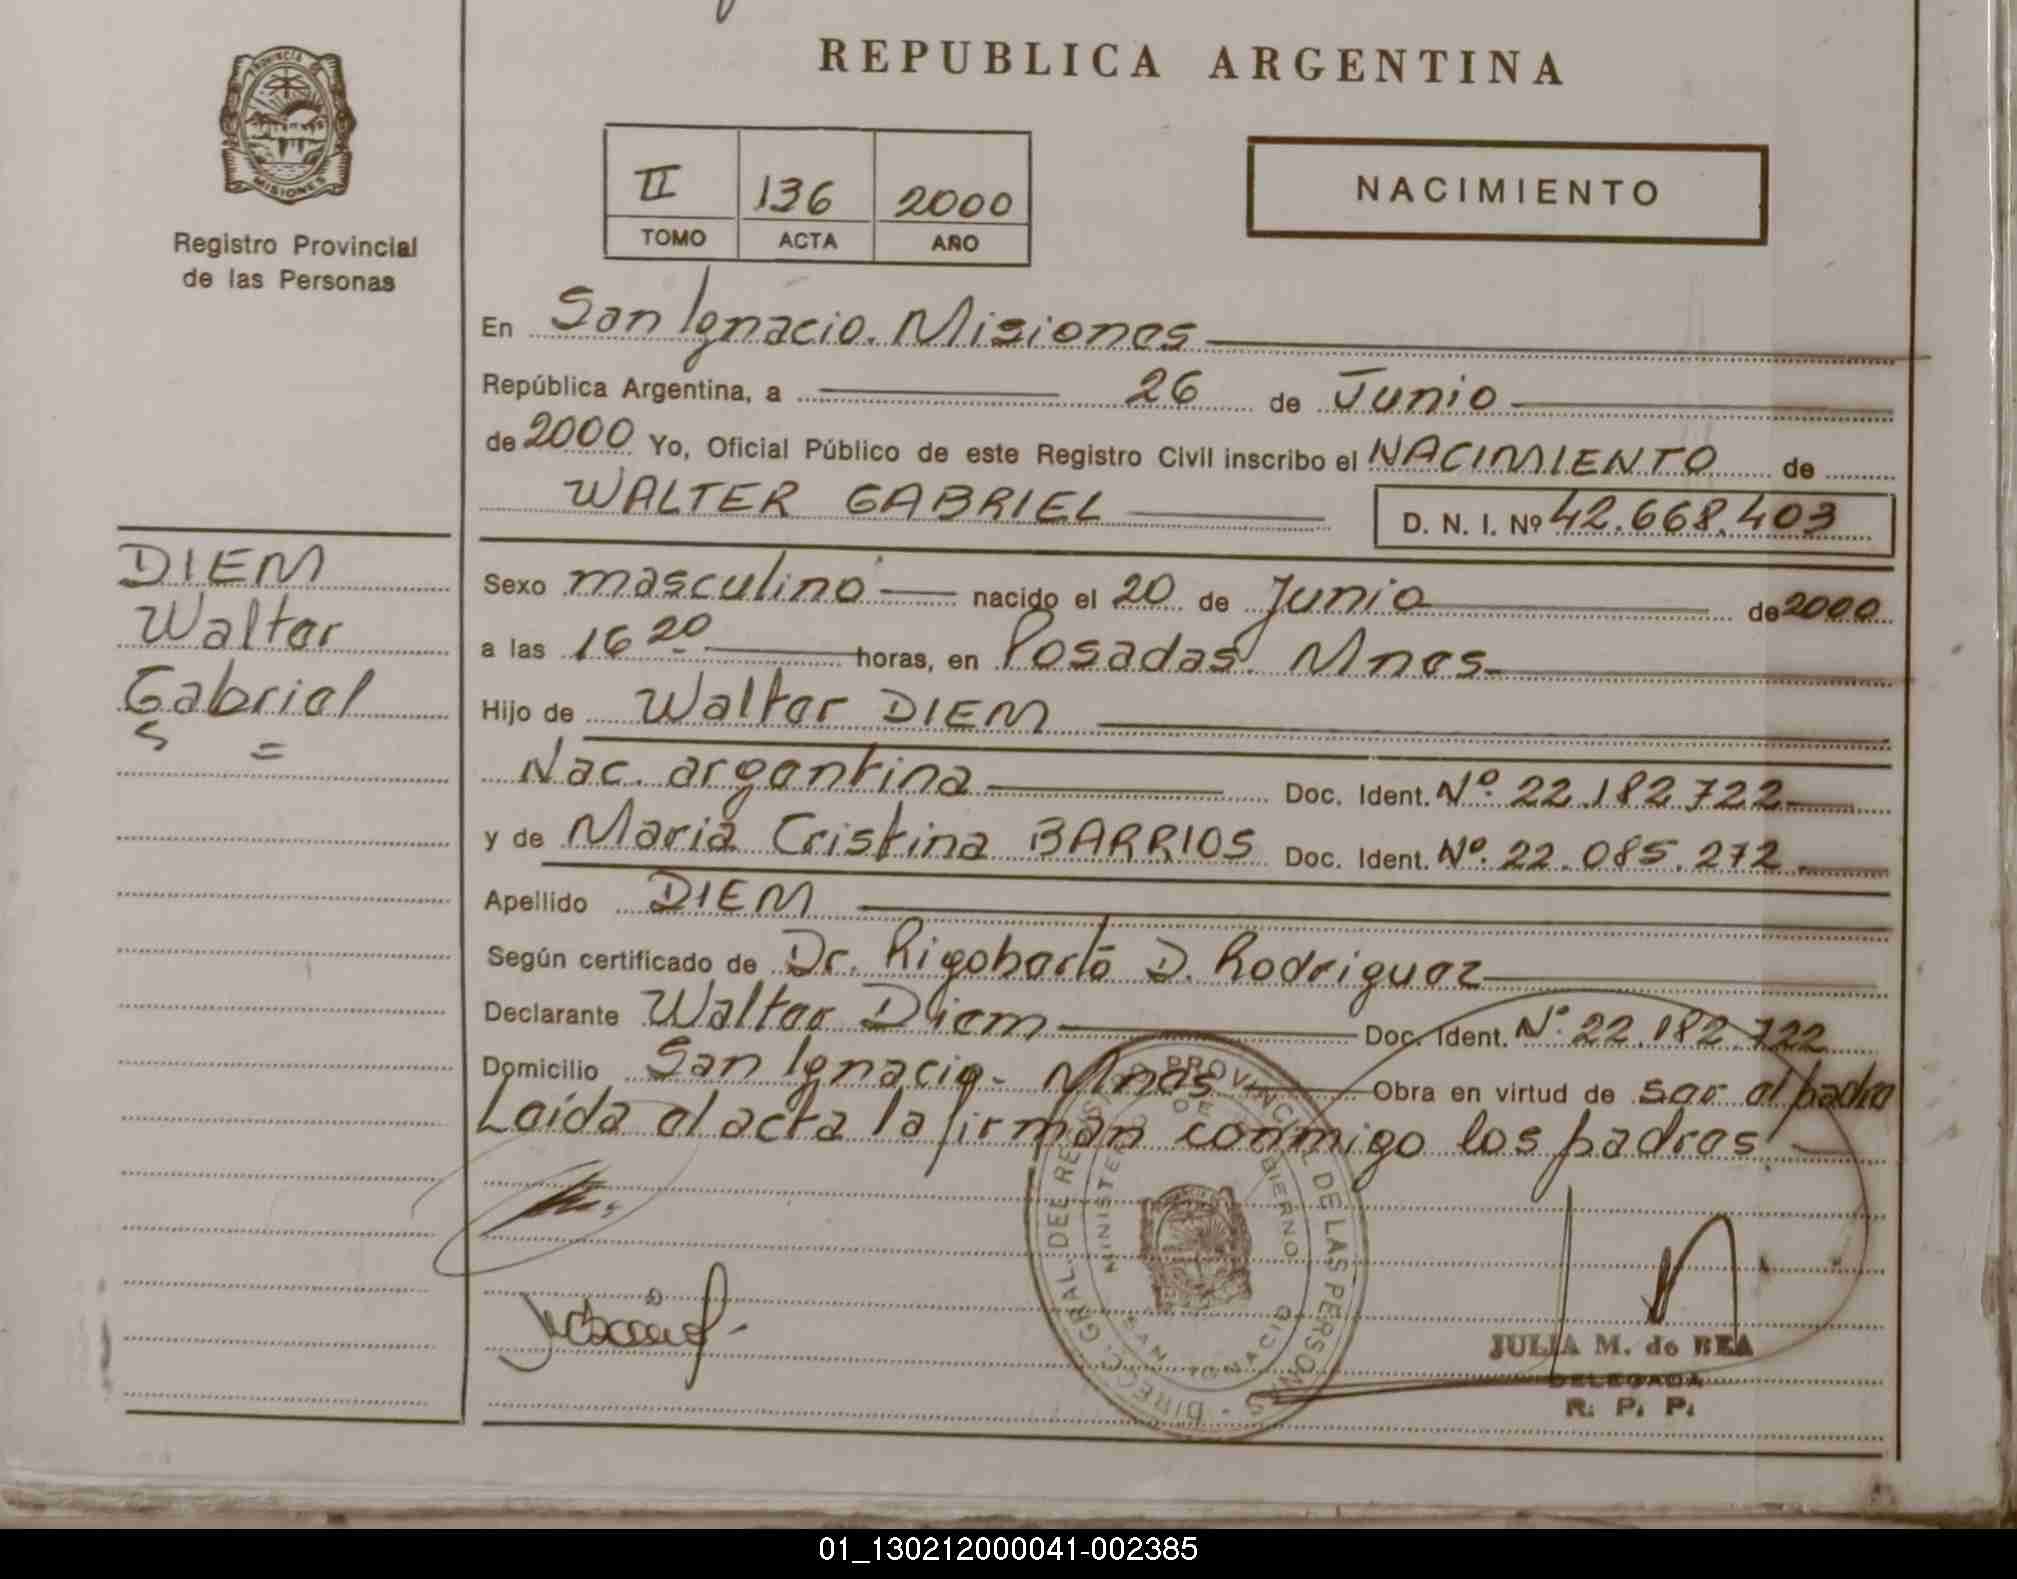 REPUBLICA ARGENTINA
PROVINCIA DE
MISIONES
Registro Provincial
de las Personas
II 136 2000
TOMO ACTA AÑO
NACIMIENTO
En San Ignacio. Misiones
República Argentina, a 26 de Junio
de 2000 Yo, Oficial Público de este Registro Civil inscribo el NACIMIENTO de
WALTER GABRIEL D. N. I. Nº 42.668.403
DIEM
Walter
Gabriel
Sexo masculino nacido el 20 de Junio de 2000
a las 16 20 horas, en Posadas. Mnes
Hijo de Walter DIEM
Nac. argentina Doc. Ident. Nº 22.182.722
y de Maria Cristina BARRIOS Doc. Ident. Nº 22.085.272
Apellido DIEM
Según certificado de Dr. Rigoberto D. Rodriguez
Declarante Walter Diem Doc. Ident. Nº 22.182.722
Domicilio San Ignacio - Mnes Obra en virtud de ser el padre
Leída el acta la firman conmigo los padres.
DIRECC. GRAL. DEL REG. PROVINCIAL DE LAS PERSONAS
MINISTERIO DE GOBIERNO
SAN IGNACIO
JULIA M. de REA
DELEGADA
R. P. P.
01_130212000041-002385